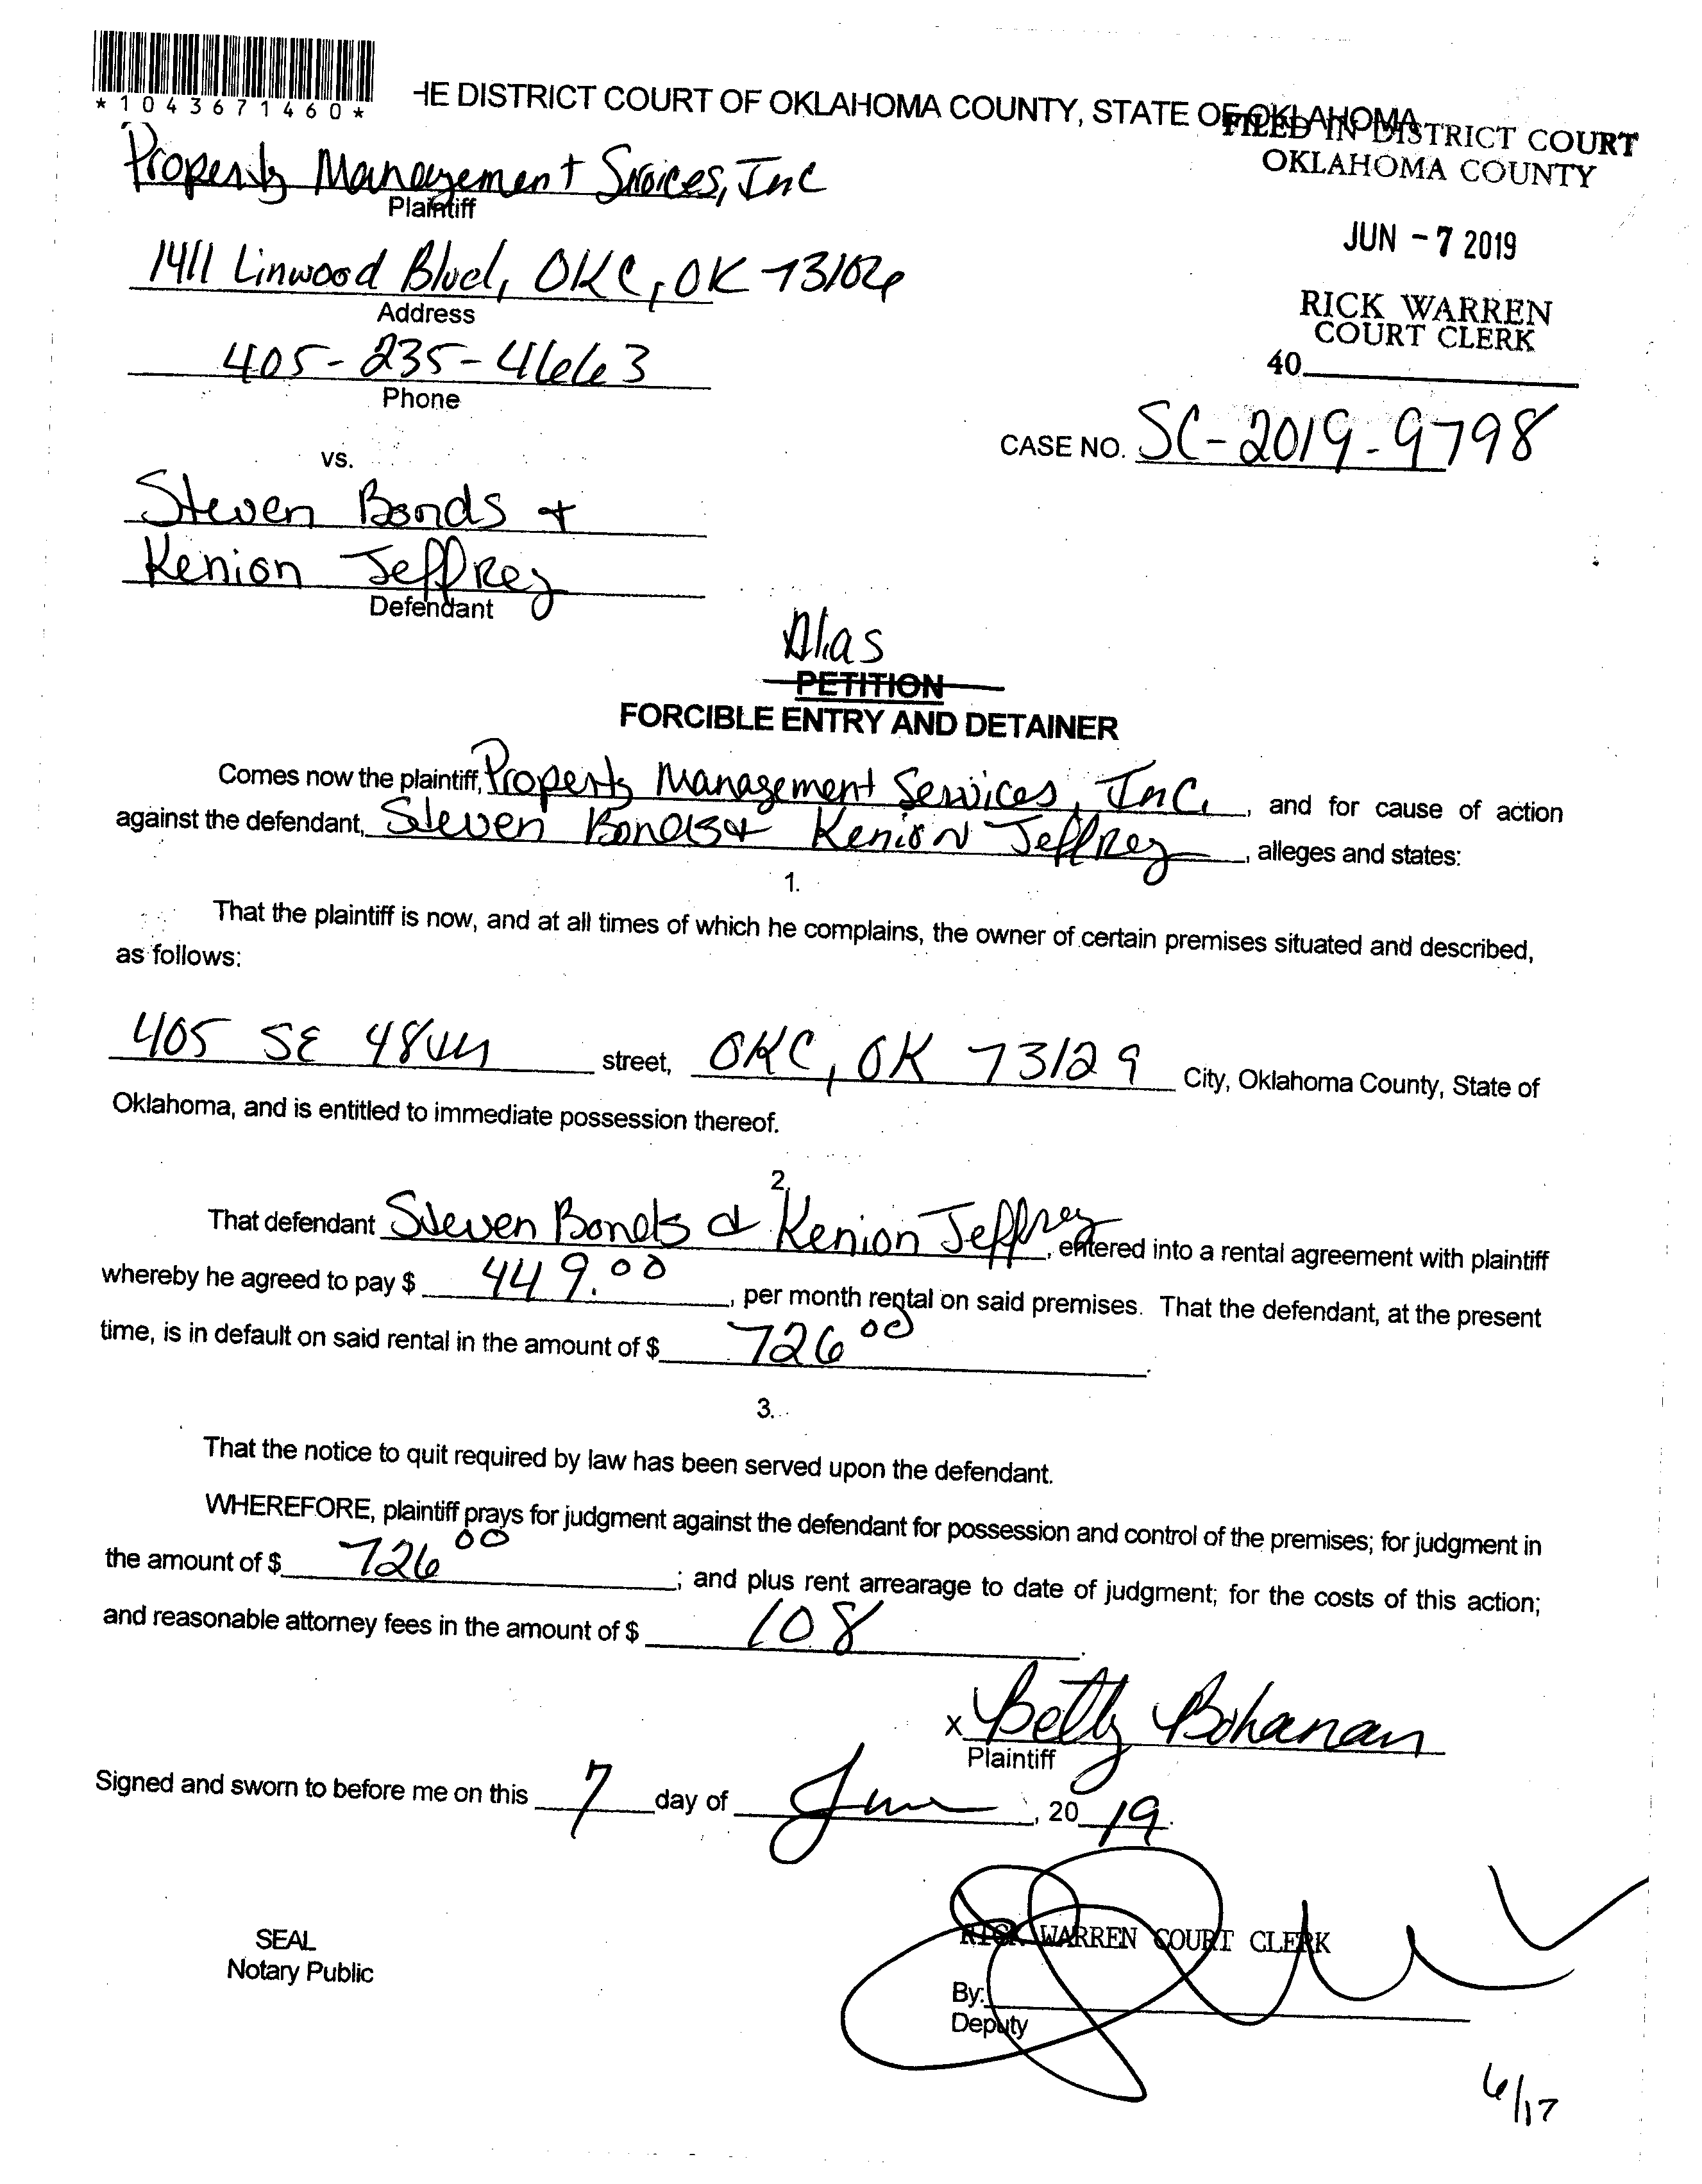 *1043671460*
HE DISTRICT COURT OF OKLAHOMA COUNTY, STATE OF OKLAHOMA
FILED IN DISTRICT COURT
OKLAHOMA COUNTY
JUN - 7 2019
RICK WARREN
COURT CLERK
40
Property Management Srvices, Inc
Plaintiff
1411 Linwood Blvd, OKC, OK 73106
Address
405-235-4663
Phone
CASE NO. SC-2019-9798
vs.
Steven Bonds +
Kenion Jeffrey
Defendant
Alias
PETITION
FORCIBLE ENTRY AND DETAINER
Comes now the plaintiff, Property Management Services, Inc., and for cause of action
against the defendant, Steven Bonds + Kenion Jeffrey, alleges and states:
1.
That the plaintiff is now, and at all times of which he complains, the owner of certain premises situated and described,
as follows:
405 SE 48th street, OKC, OK 73129 City, Oklahoma County, State of
Oklahoma, and is entitled to immediate possession thereof.
2.
That defendant Steven Bonds & Kenion Jeffrey, entered into a rental agreement with plaintiff
whereby he agreed to pay $ 449.00, per month rental on said premises. That the defendant, at the present
time, is in default on said rental in the amount of $ 726 00.
3.
That the notice to quit required by law has been served upon the defendant.
WHEREFORE, plaintiff prays for judgment against the defendant for possession and control of the premises; for judgment in
the amount of $ 726 00; and plus rent arrearage to date of judgment; for the costs of this action;
and reasonable attorney fees in the amount of $ 108.
x Betty Bohanan
Plaintiff
Signed and sworn to before me on this 7 day of June, 20 19.
SEAL
Notary Public
RICK WARREN COURT CLERK
By:
Deputy
6/17